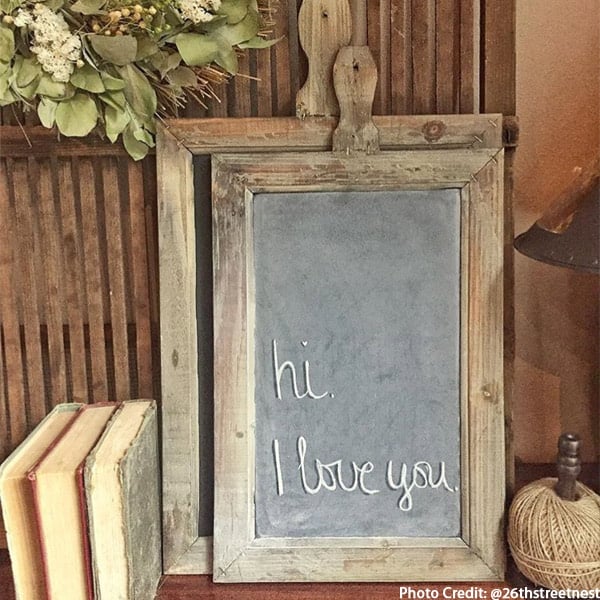 hi.
I love you.
Photo Credit: @26thstreetnest